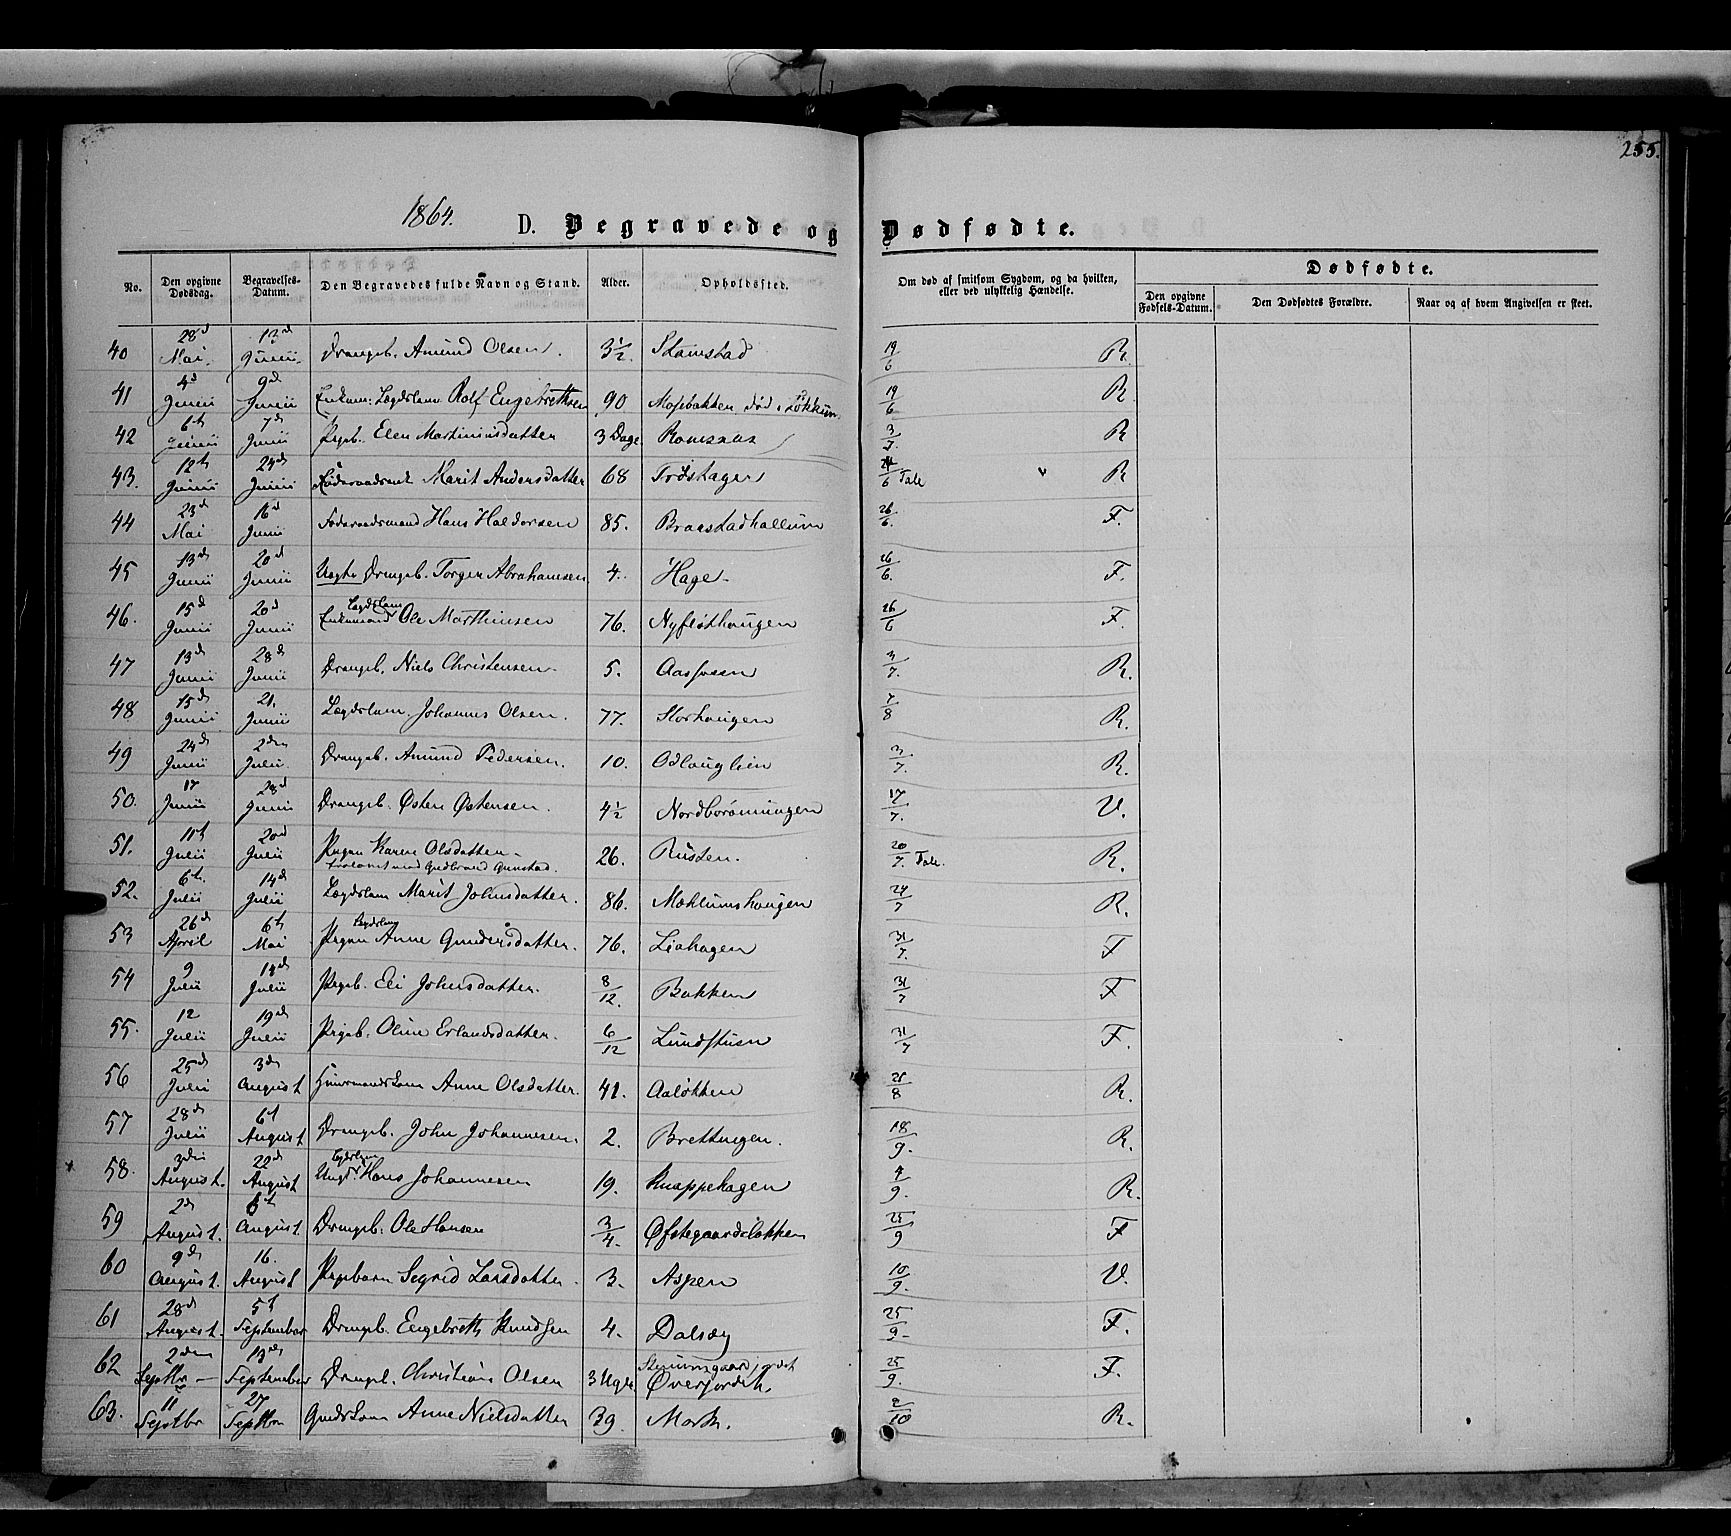 255.
1864.
D. Begravede og Dødfødte.
No.
Den opgivne Dødsdag.
Begravelses-Datum.
Den Begravedes fulde Navn og Stand.
Alder.
Opholdssted.
Om død af smitsom Sygdom, og da hvilken, eller ved ulykkelig Hændelse.
Dødfødte.
Den opgivne Fødsels-Datum.
Den Dødfødtes Forældre.
Naar og af hvem Angivelsen er skeet.
40 28d Mai. 13d Junii. Drengeb. Amund Olsen. 3 1/2. Stamstad 19/6 R.
41 4d Junii 9d Junii Enkem: Lægdslem Rolf Engebrethsen 90 Mosebakken død i Løkkum 19/6 R.
42 6t Junii 7d Junii Pigeb. Elen Martiniusdatter 3 Dage Ramsaas 3/7. R
43. 12t Junii 24d Junii Marit Andersdatter 68 Trøshagen 24/6 Tale R
44 23d Mai 16d Junii Føderaadsmand Hans Haldorsen 85. Braastadhallum 26/6. F.
45 13d Junii 20d Junii Uægte Drengeb. Torger Abrahamsen 4. Hage. 26/6. F.
46. 15d Junii 20d Junii Lægdslem Enkemand Ole Marthinsen 76. Nyfløthaugen 26/6 F.
47 13d Junii 28d Junii Drengeb. Niels Christensen. 5. Aasfossen 3/7. R.
48 15d Junii 21. Junii Lægdslem. Johannes Olsen. 77. Storhaugen 7/8 R.
49 24d Junii 2den Julii. Drengeb. Amund Pedersen. 10. Odlauglien 3/7. R.
50. 17 Junii 28d Junii Drengeb. Østen Østensen. 4 1/2 Nordbrønningen 17/7. V.
51. 11t Julii 20d Julii Pigen Karen Olsdatter. trolovet med Gudbrand Gunstad. 26. Rusten. 20/7. Tale. R.
52. 6t. Julii 14d Julii Lægdslem Marit Johnsdatter. 86. Mæhlumshaugen 24/7 R.
53 26d April 6t Mai Lægdslem Pigen Anne Gundersdatter. 76. Liahagen 31/7. F
54 9 Julii 18d Julii Pigeb. Eli Johnsdatter. 8/12. Bakken 31/7 F
55. 12 Julii 19d Julii Pigeb. Oline Erlandsdatter. 6/12 Lundstuen 31/7 F.
56 25d Julii 3de August Huusmandskone Anne Olsdatter. 41. Aaløkken 25/8 R.
57 28d Julii 6t August. Drengeb. John Johannesen. 2. Brettingen. 18/9. R.
58. 3die August. 22d August Lægdslem Ungk. Hans Johannesen 19. Knappehagen 4/9. R.
59 2d August. 6t August. Drengeb. Ole Hansen 3/4. Øfstegaardsløkken 25/9 F
60 9d August. 16. August Pigebarn Segrid Larsdatter. 3. Aspen 10/9. V.
61 28d August. 5t September Drengeb. Engebreth Knudsen 4. Dalsæg 25/9. F.
62 2den Septbr 13d September Drengeb. Christian Olsen 3 Uger. Øverjordet 25/9. F.
63. 11 Septbr 27 Septbr Gaardskone Anne Nielsdatter 39. Mark. 2/10 R.